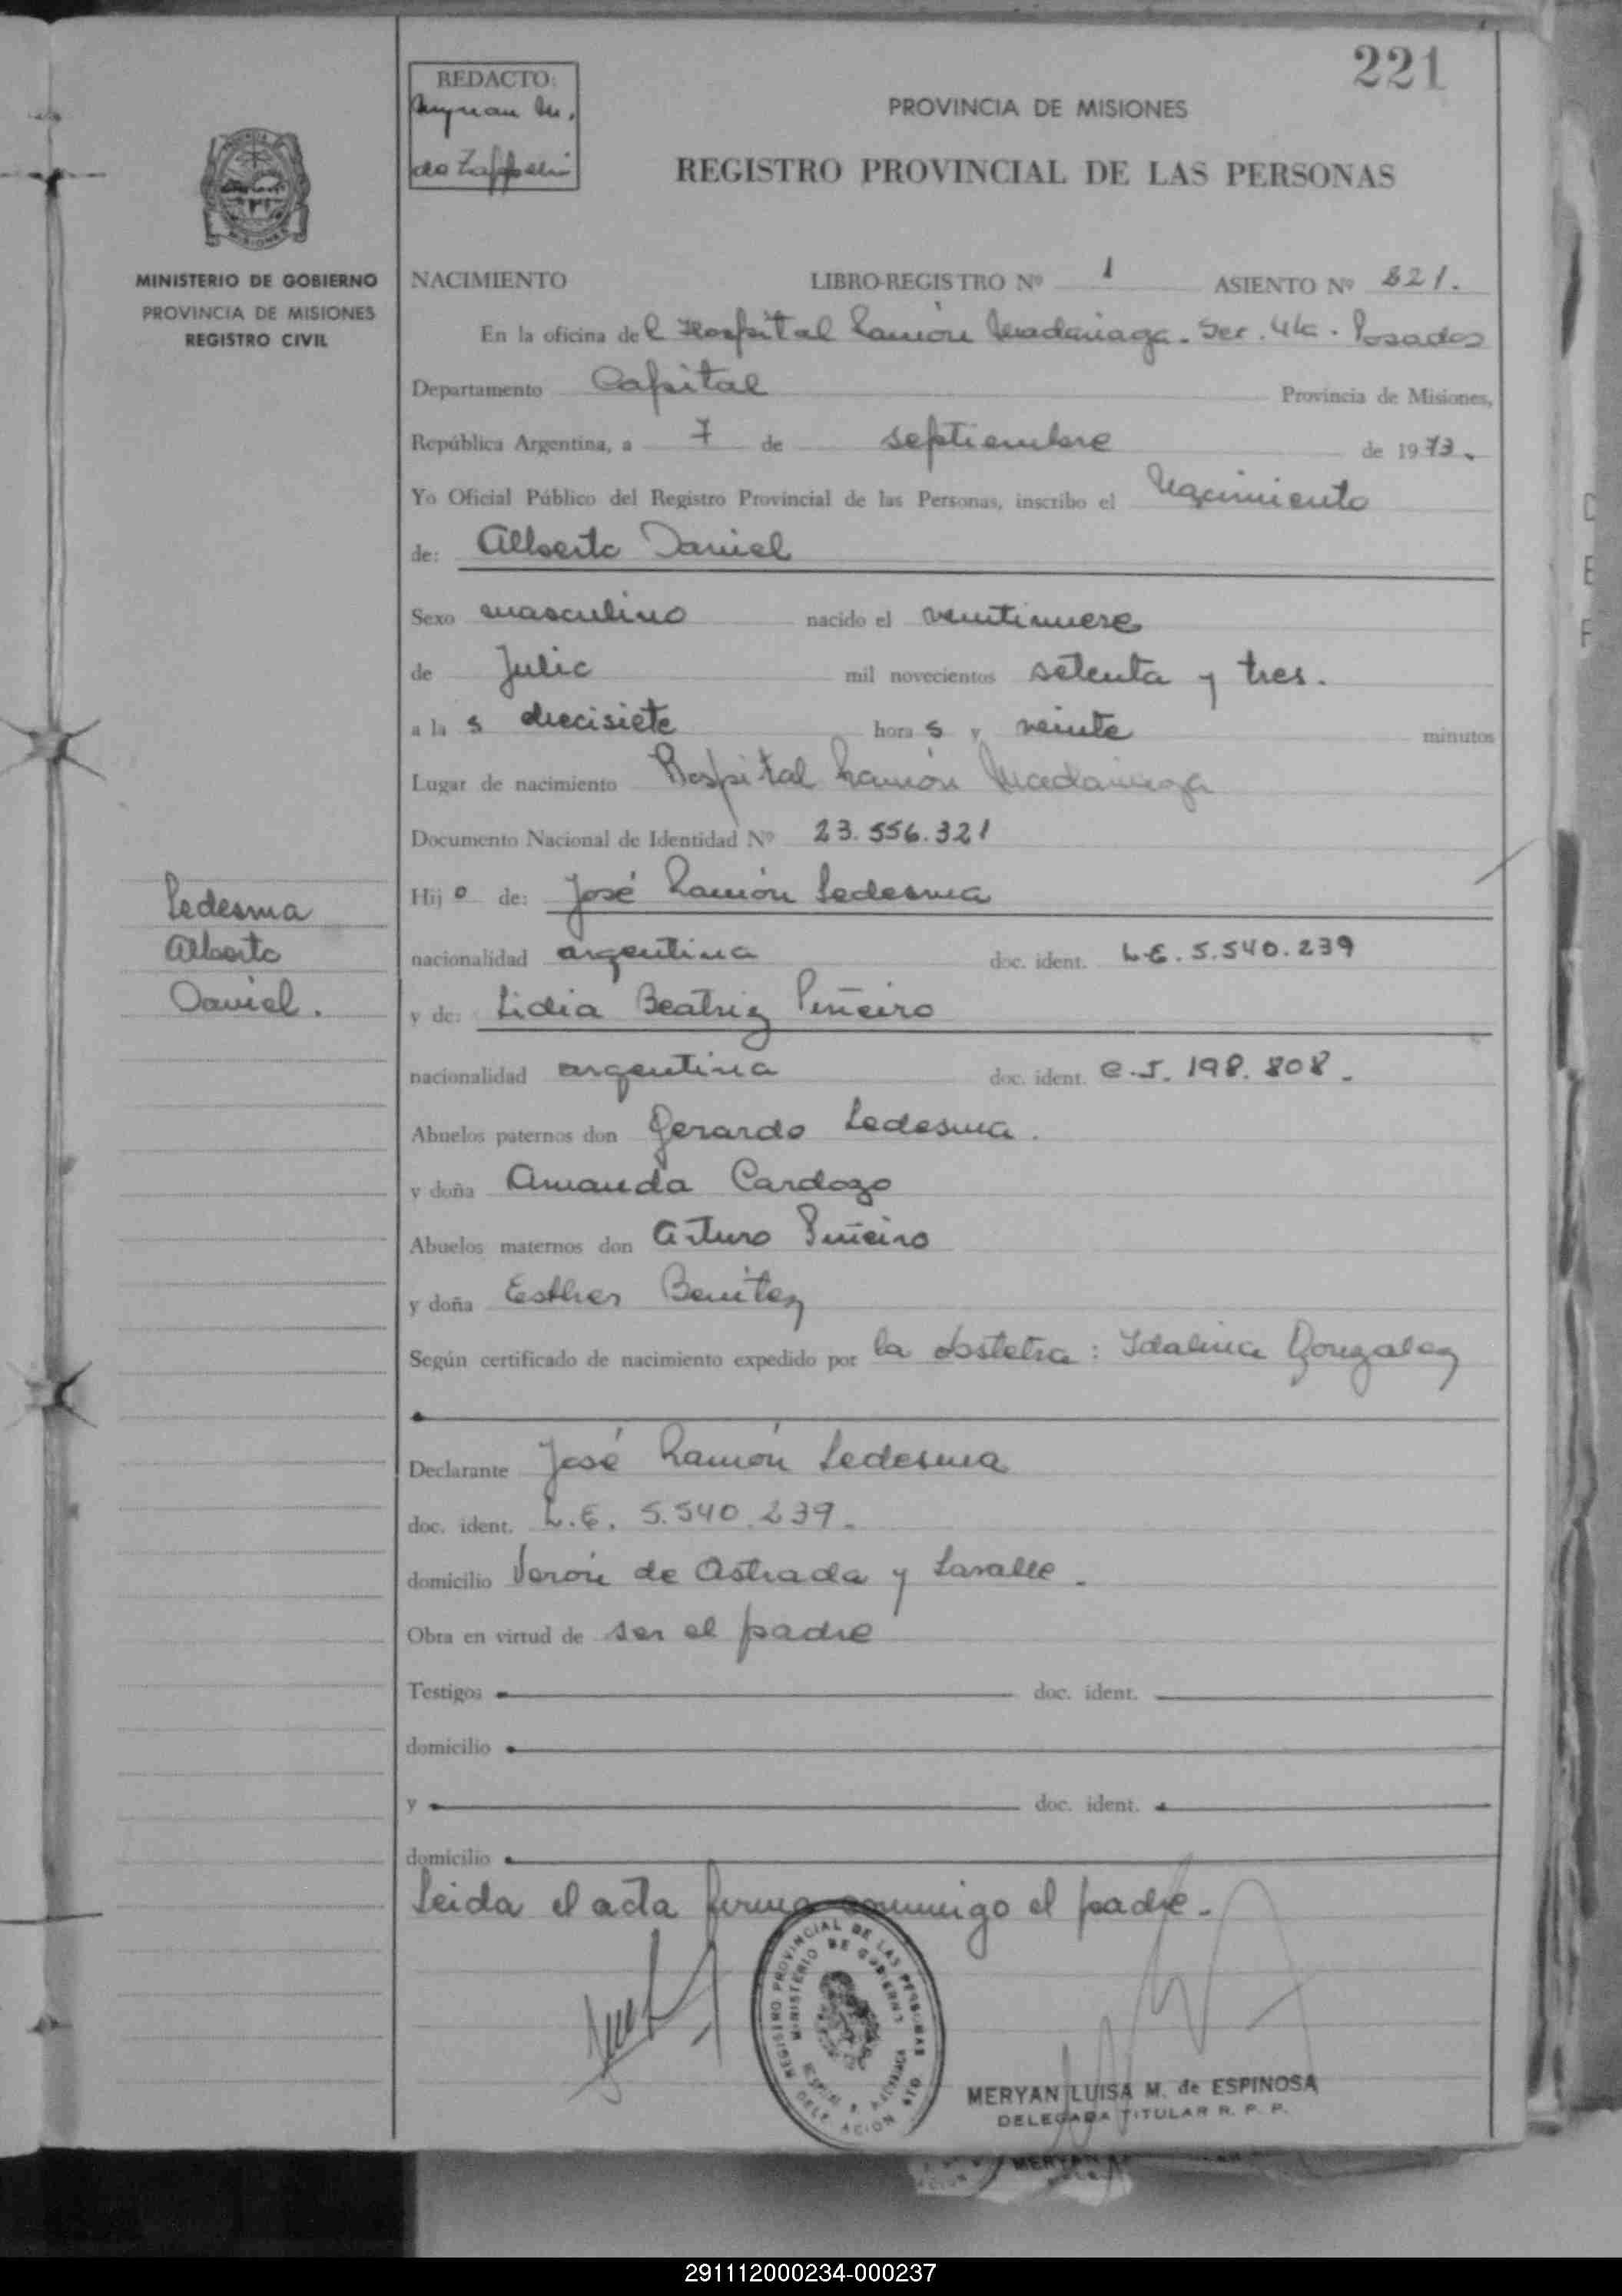 221
REDACTO:
Myrian M.
de Zappelli
PROVINCIA DE MISIONES
REGISTRO PROVINCIAL DE LAS PERSONAS
MISIONES
MINISTERIO DE GOBIERNO
PROVINCIA DE MISIONES
REGISTRO CIVIL
NACIMIENTO LIBRO-REGISTRO Nº 1 ASIENTO Nº 221.
En la oficina del Hospital Ramón Madariaga. Sec. 4ta. Posadas
Departamento Capital Provincia de Misiones,
República Argentina, a 7 de septiembre de 1973.
Yo Oficial Público del Registro Provincial de las Personas, inscribo el Nacimiento
de: Alberto Daniel
Sexo masculino nacido el veintinueve
de Julio mil novecientos setenta y tres.
a las diecisiete horas y veinte minutos
Lugar de nacimiento Hospital Ramón Madariaga
Documento Nacional de Identidad Nº 23.556.321
Hijo de: José Ramón Ledesma
nacionalidad argentina doc. ident. L.E. 5.540.239
y de: Lidia Beatriz Piñeiro
nacionalidad argentina doc. ident. C.I. 198.808.
Ledesma
Alberto
Daniel.
Abuelos paternos don Gerardo Ledesma.
y doña Amanda Cardozo
Abuelos maternos don Arturo Piñeiro
y doña Esther Benitez
Según certificado de nacimiento expedido por la obstetra: Idalina Gonzalez
Declarante José Ramón Ledesma
doc. ident. L.E. 5.540.239.
domicilio Verón de Astrada y Lavalle.
Obra en virtud de ser el padre
Testigos doc. ident.
domicilio
y doc. ident.
domicilio
Leida el acta firma conmigo el padre.
REGISTRO PROVINCIAL DE LAS PERSONAS
MINISTERIO DE GOBIERNO
DELEGACION
MERYAN LUISA M. de ESPINOSA
DELEGADA TITULAR R. P. P.
MERYAN
291112000234-000237